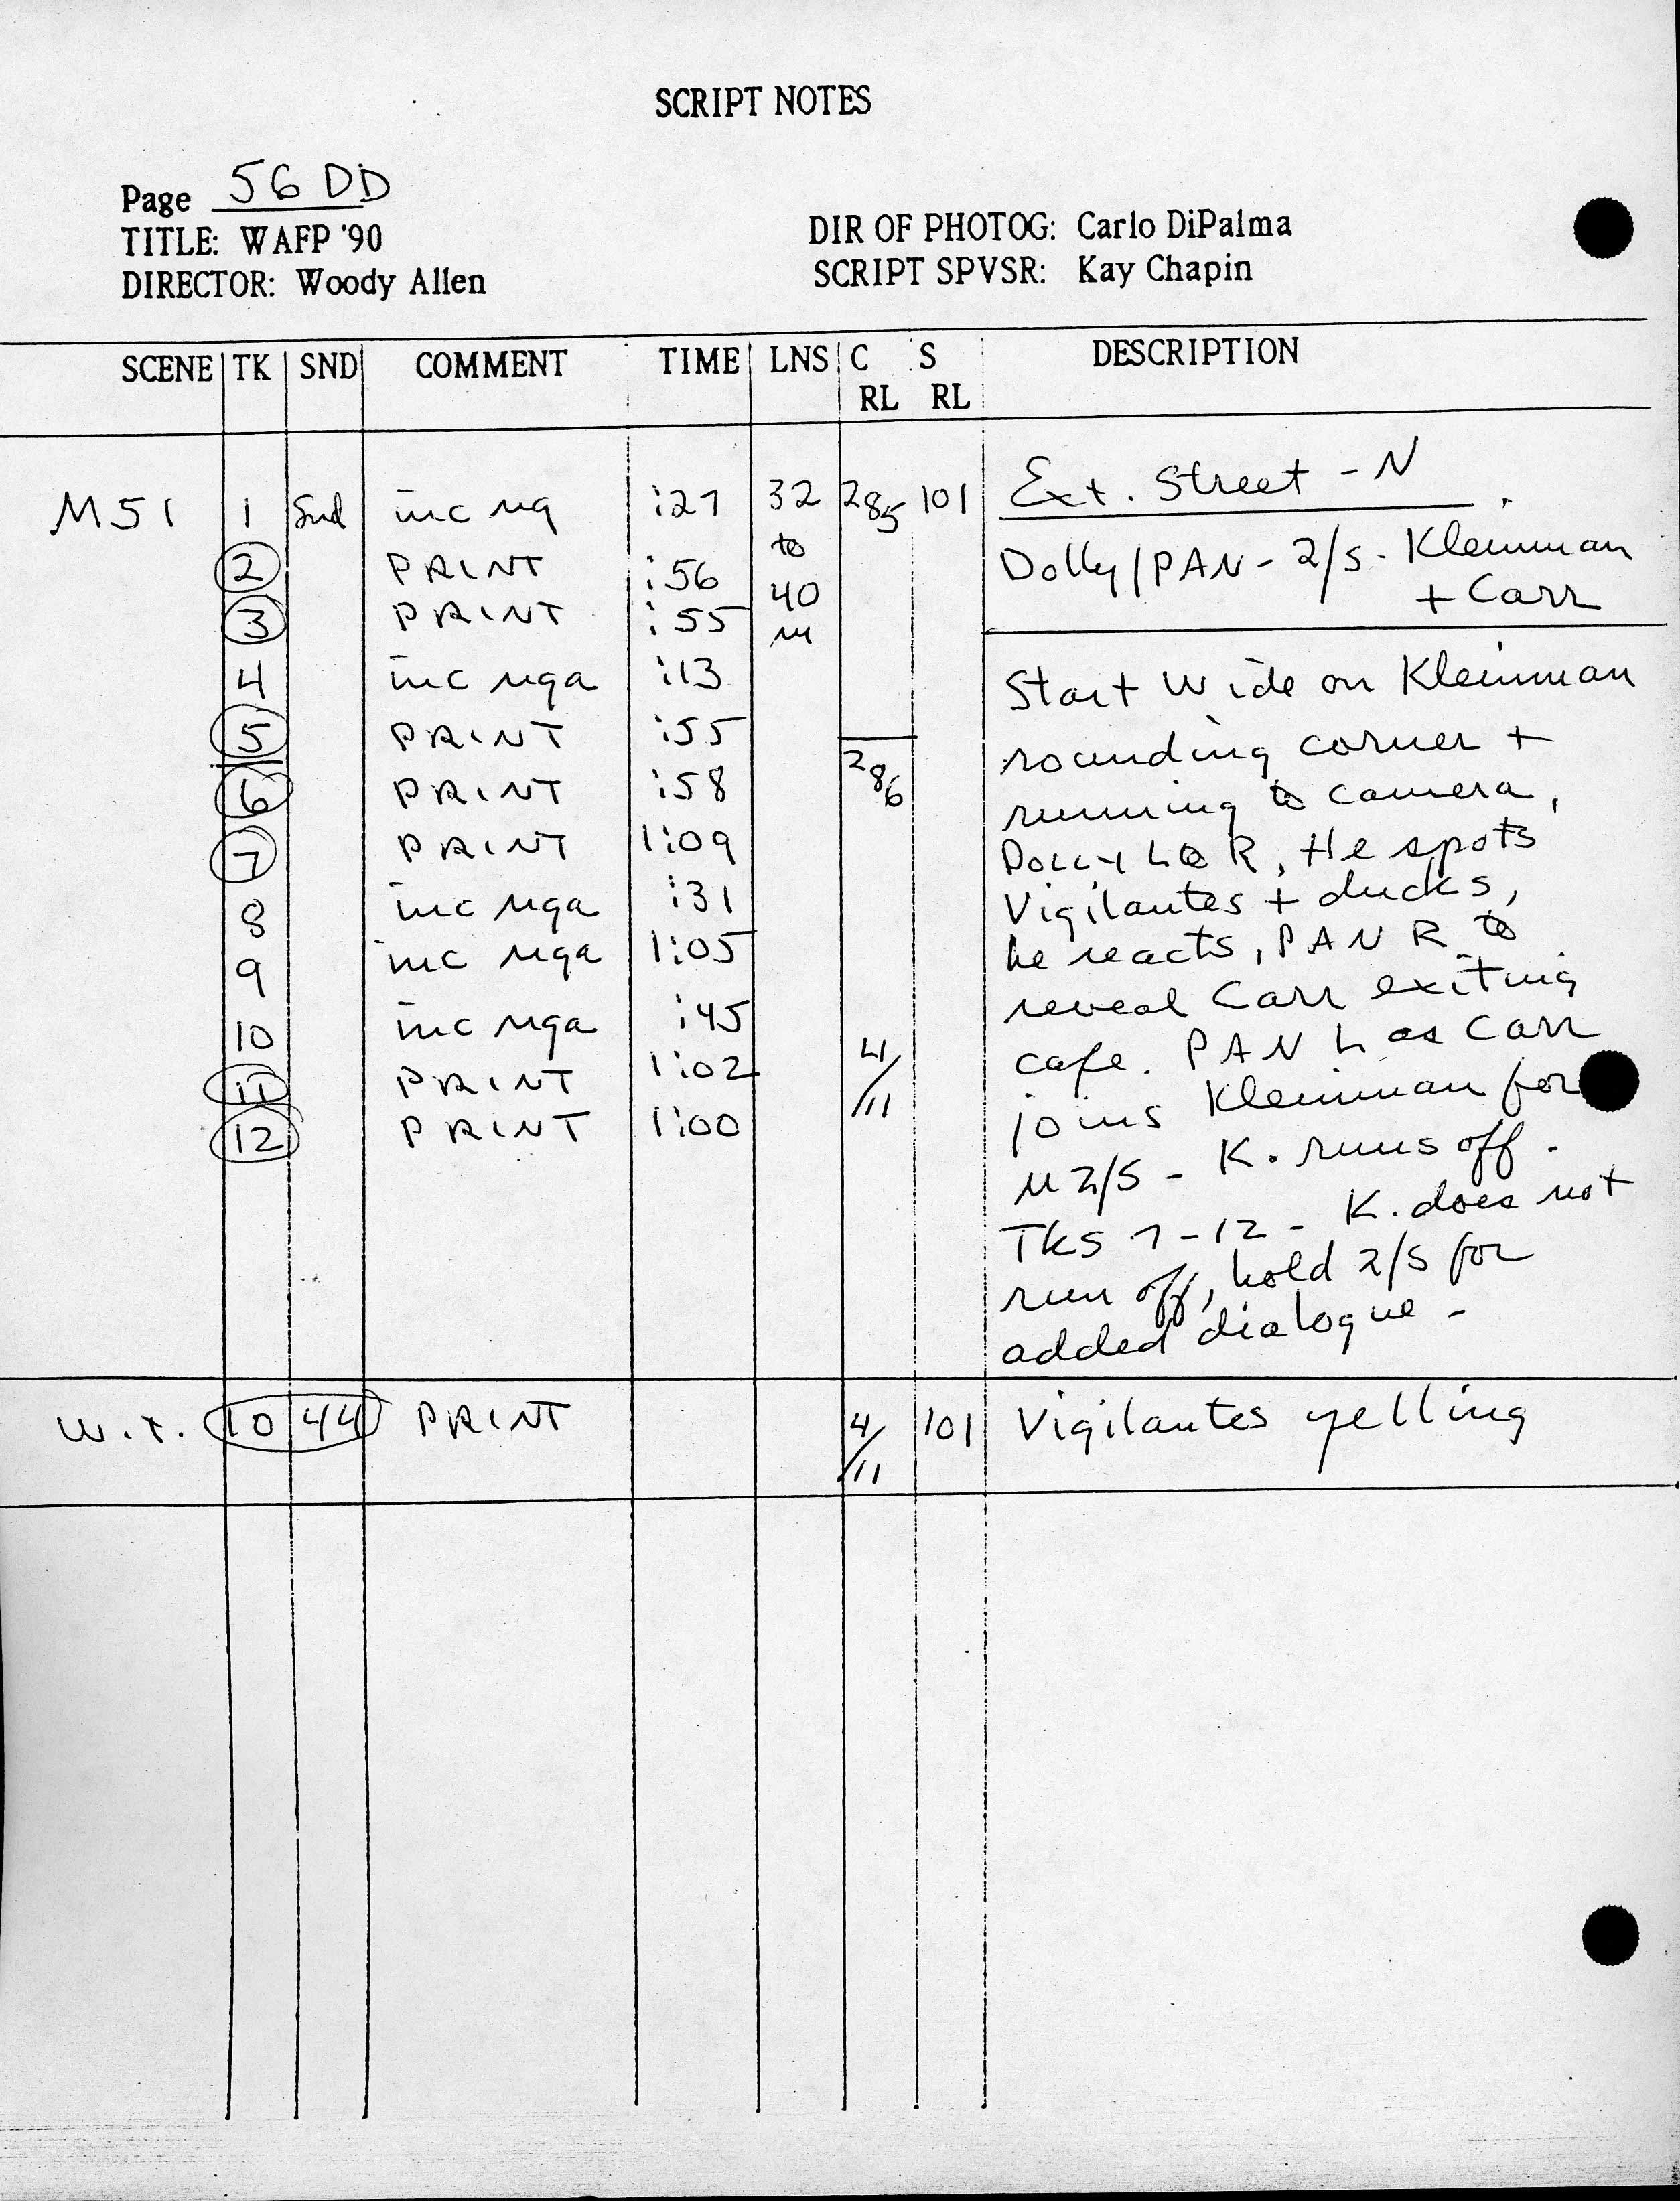 SCRIPT NOTES
Page 56 DD
TITLE: WAFP '90
DIRECTOR: Woody Allen
DIR OF PHOTOG: Carlo DiPalma
SCRIPT SPVSR: Kay Chapin
SCENE TK SND COMMENT TIME LNS C RL S RL DESCRIPTION
M51 1 Snd inc ng :27 32 285 101 Ext. Street - N
to
2 PRINT :56 Dolly/PAN - 2/S - Kleinman
40
3 PRINT :55 + Carr
m
4 inc nga :13 Start wide on Kleinman
5 PRINT :55 rounding corner +
6 PRINT :58 286 running to camera,
7 PRINT 1:09 Dolly L to R, He spots
8 inc nga :31 Vigilantes + ducks,
9 inc nga 1:05 he reacts, PAN R to
10 inc nga :45 reveal Carr exiting
11 PRINT 1:02 4/11 cafe. PAN L as Carr
12 PRINT 1:00 joins Kleinman for
M 2/S - K. runs off.
TKS 7-12 - K. does not
run off, hold 2/S for
added dialogue -
W.T. 1044 PRINT 4/11 101 Vigilantes yelling